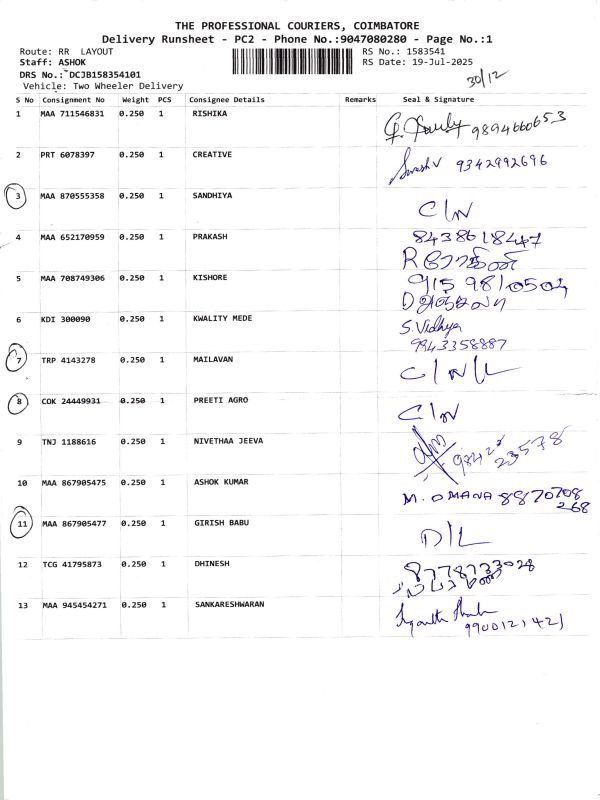 THE PROFESSIONAL COURIERS, COIMBATORE
Delivery Runsheet - PC2 - Phone No.:9047080280 - Page No.:1
Route: RR LAYOUT RS No.: 1583541
Staff: ASHOK RS Date: 19-Jul-2025
DRS No.: DCJB158354101
Vehicle: Two Wheeler Delivery 30/12
S No Consignment No Weight PCS Consignee Details Remarks Seal & Signature
1 MAA 711546831 0.250 1 RISHIKA 9894660653
2 PRT 6078397 0.250 1 CREATIVE 9342992696
3 MAA 870555358 0.250 1 SANDHIYA C/N
4 MAA 652170959 0.250 1 PRAKASH 8438618447
5 MAA 708749306 0.250 1 KISHORE
6 KDI 300090 0.250 1 KWALITY MEDE S. Vidhya
9943358887
7 TRP 4143278 0.250 1 MAILAVAN C/N/L
8 COK 24449931 0.250 1 PREETI AGRO C/N
9 TNJ 1188616 0.250 1 NIVETHAA JEEVA
10 MAA 867905475 0.250 1 ASHOK KUMAR M. OMANA 8870708
268
11 MAA 867905477 0.250 1 GIRISH BABU D/L
12 TCG 41795873 0.250 1 DHINESH
13 MAA 945454271 0.250 1 SANKARESHWARAN
9900121421